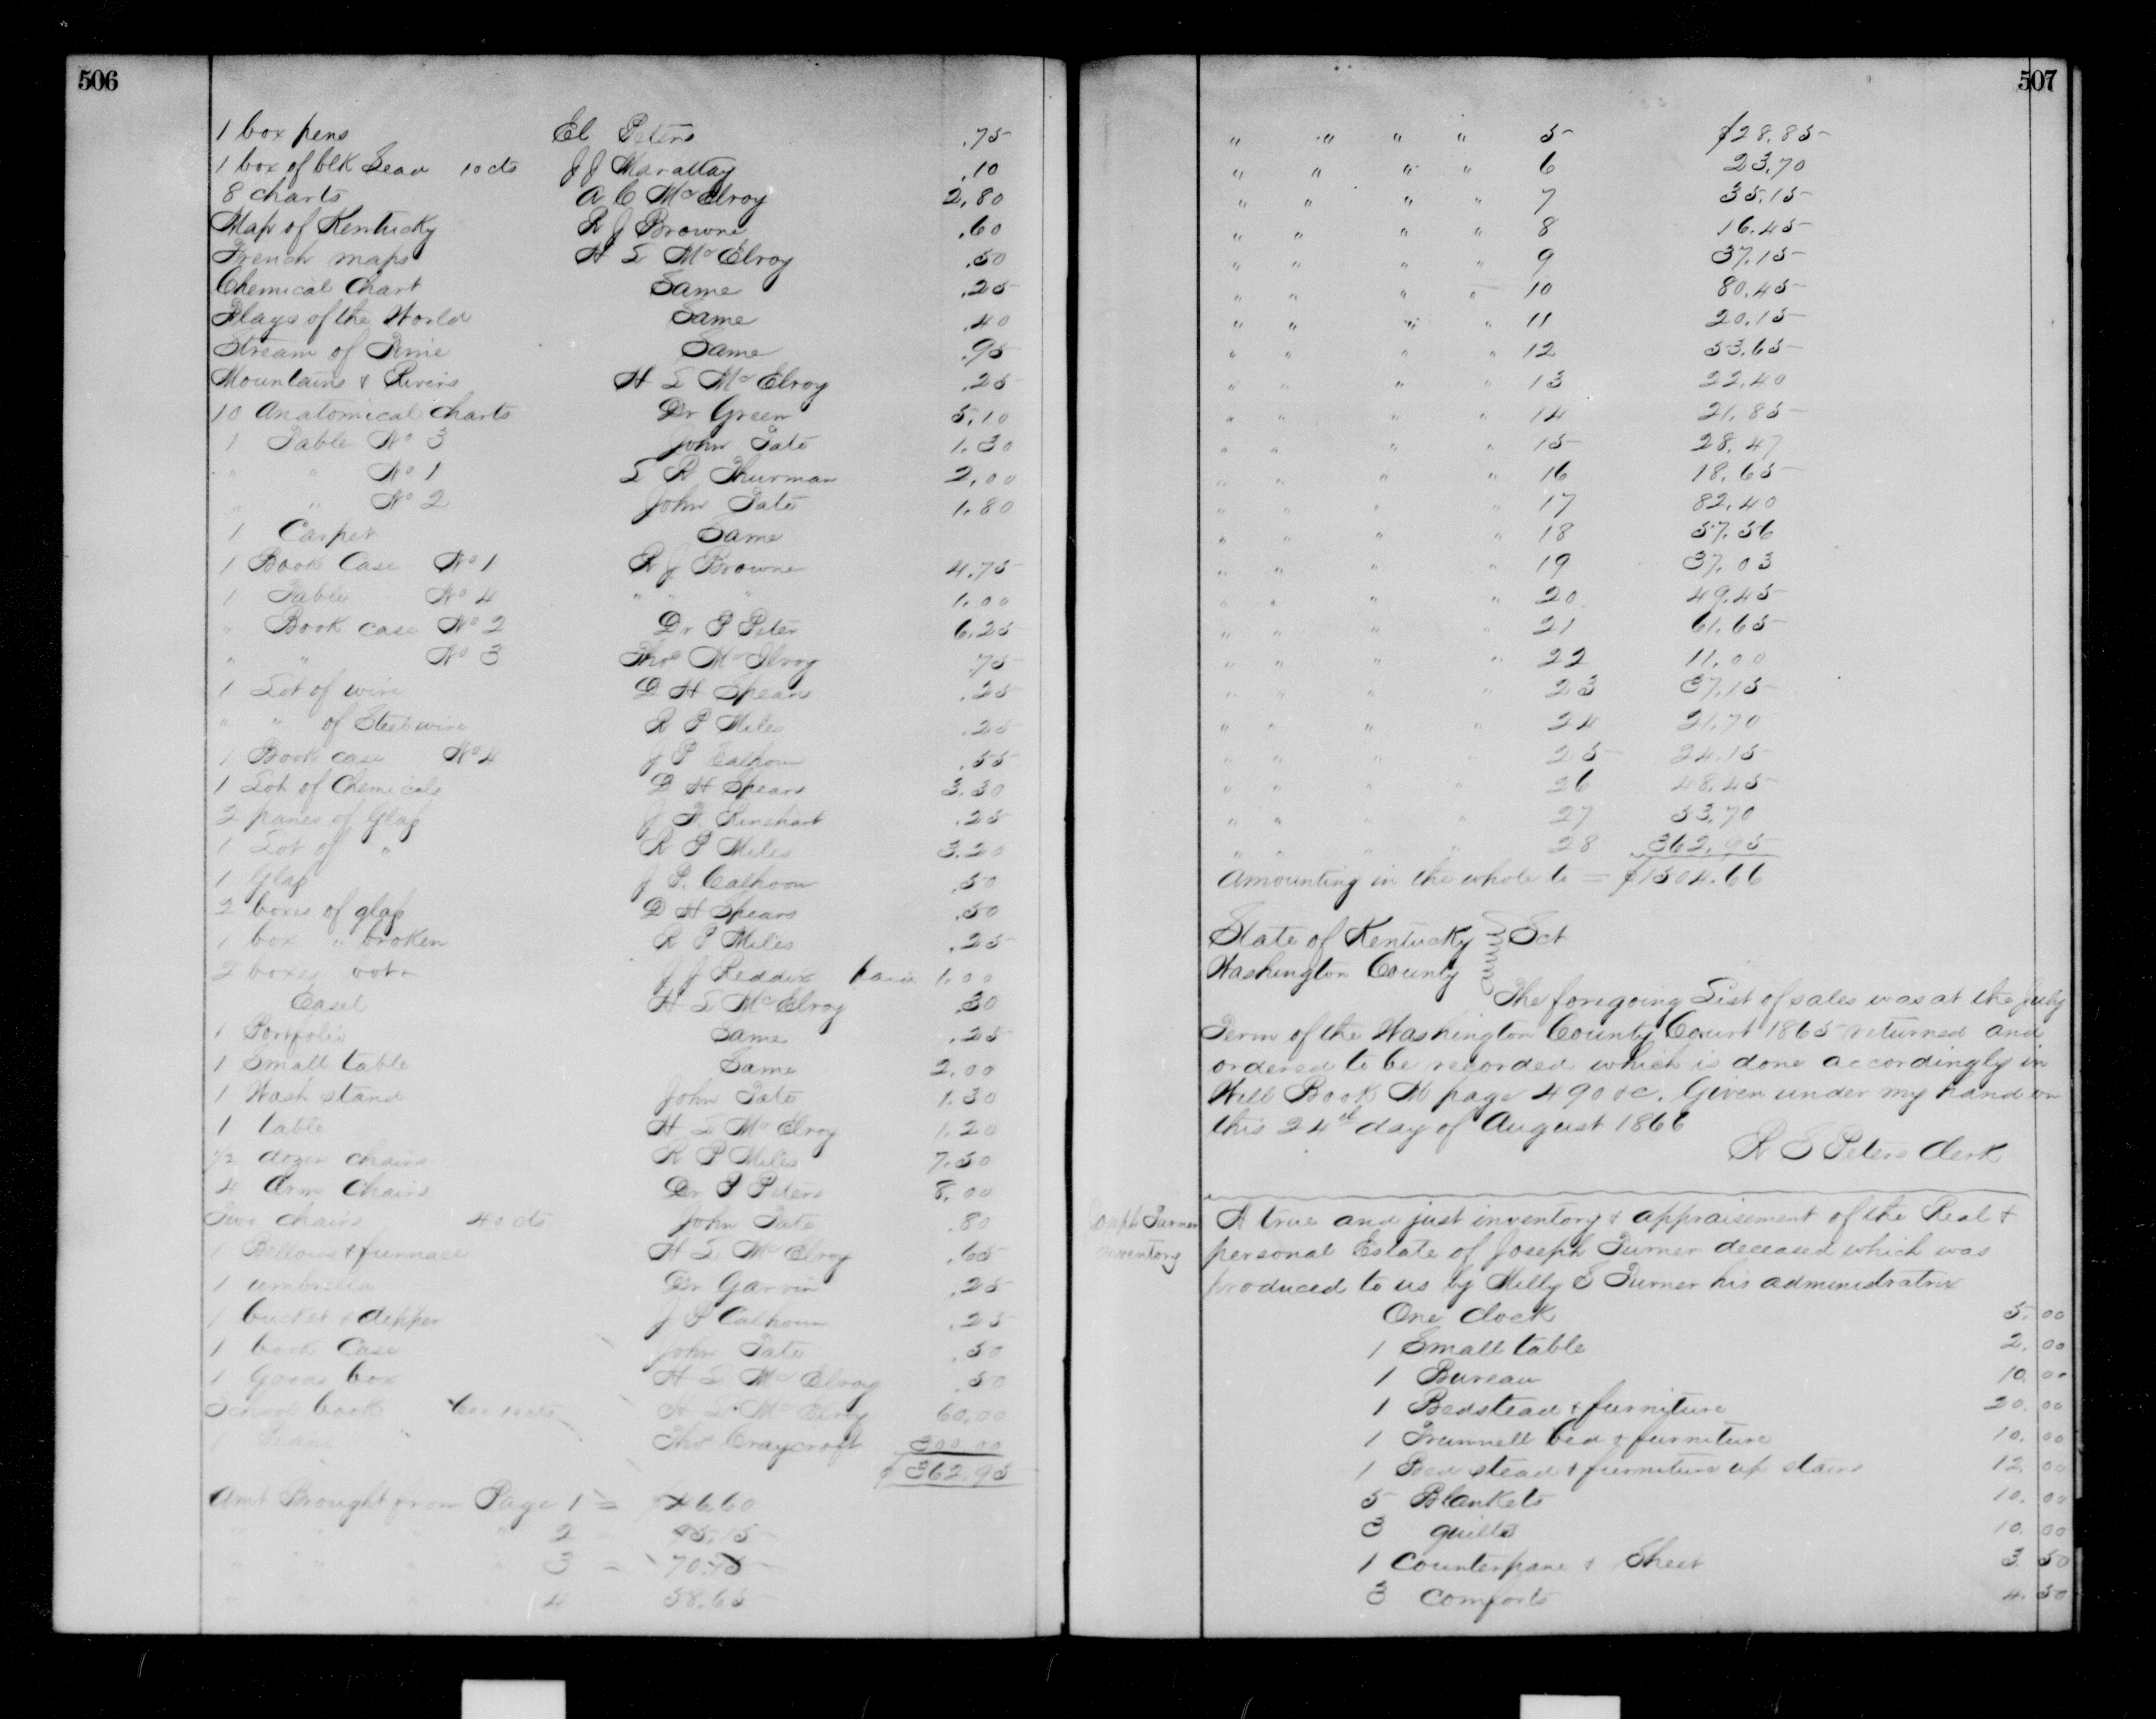 506
1 box pens El Peters .75
1 box of blk Lead 10 cts J J Marattay .10
8 charts A C McElroy 2.80
Map of Kentucky R J Browne .60
French maps H L McElroy .50
Chemical Chart Same .25
Flags of the World Same .40
Stream of Time Same .95
Mountains & Rivers H L McElroy .25
10 Anatomical Charts Dr Green 5.10
1 Table No 3 John Pate 1.30
" " No 1 L R Thurman 2.00
" " No 2 John Pate 1.80
1 Carpet Same
1 Book Case No 1 R J Browne 4.75
1 Table No 4 " " " 1.00
" Book case No 2 Dr P Peter 6.25
" " No 3 Thos McIlroy .75
1 Lot of wire D H Spears .25
" " of Steel wire R P Miles .25
1 Book case No 4 J P Calhoun .55
1 Lot of Chemicals D H Spears 3.30
2 panes of Glass J F. Rinehart .25
1 Lot of " R P Miles 3.20
1 Glass J P. Calhoon .50
2 boxes of glass D H Spears .50
1 box " broken R P Miles .25
2 boxes J J Reddix 1.00
Easel H L McElroy .30
1 Portfolio Same .25
1 Small table Same 2.00
1 Wash stand John Pate 1.30
1 table H L McElroy 1.20
1/2 dozen chairs R P Miles 7.50
4 Arm Chairs Dr P Peters 8.00
Two chairs 40 cts John Pate .80
1 Bellows & furnace H L McElroy .65
1 umbrella Dr Garvin .25
1 bucket & dipper J P Calhoun .25
1 book Case John Pate .50
1 Goods box H L McElroy .50
School book H L McElroy 60.00
1 Thos Craycroft 300.00
$362.95
Amt Brought from Page 1 = 46.60
" " " " 2 45.15
" " " " 3 = 70.75
" " " " 4 58.65
507
" " " " 5 $28.85
" " " " 6 23.70
" " " " 7 35.15
" " " " 8 16.45
" " " " 9 37.15
" " " " 10 80.45
" " " " 11 20.15
" " " " 12 53.65
" " " " 13 22.40
" " " " 14 21.85
" " " " 15 28.47
" " " " 16 18.65
" " " " 17 82.40
" " " " 18 57.56
" " " " 19 37.03
" " " " 20 49.45
" " " " 21 61.65
" " " " 22 11.00
" " " " 23 37.15
" " " " 24 21.70
" " " " 25 24.15
" " " " 26 48.45
" " " " 27 53.70
" " " " 28 362.95
Amounting in the whole to = $1504.66
State of Kentucky } Sct
Washington County
The foregoing List of sales was at the July
Term of the Washington County Court 1865 returned and
ordered to be recorded which is done accordingly in
Will Book M page 490 &c. Given under my hand on
this 24th day of August 1866
R S Peters Clerk
Joseph Turner
Inventory
A true and just inventory & appraisement of the Real &
personal Estate of Joseph Turner deceased which was
produced to us by Milly S Turner his administratrix
One Clock 5.00
1 Small table 2.00
1 Bureau 10.00
1 Bedstead & furniture 20.00
1 Trunnell bed & furniture 10.00
1 Bed stead & furniture up stairs 12.00
5 Blankets 10.00
3 quilts 10.00
1 Counterpane & Sheet 3.50
3 Comforts 4.50